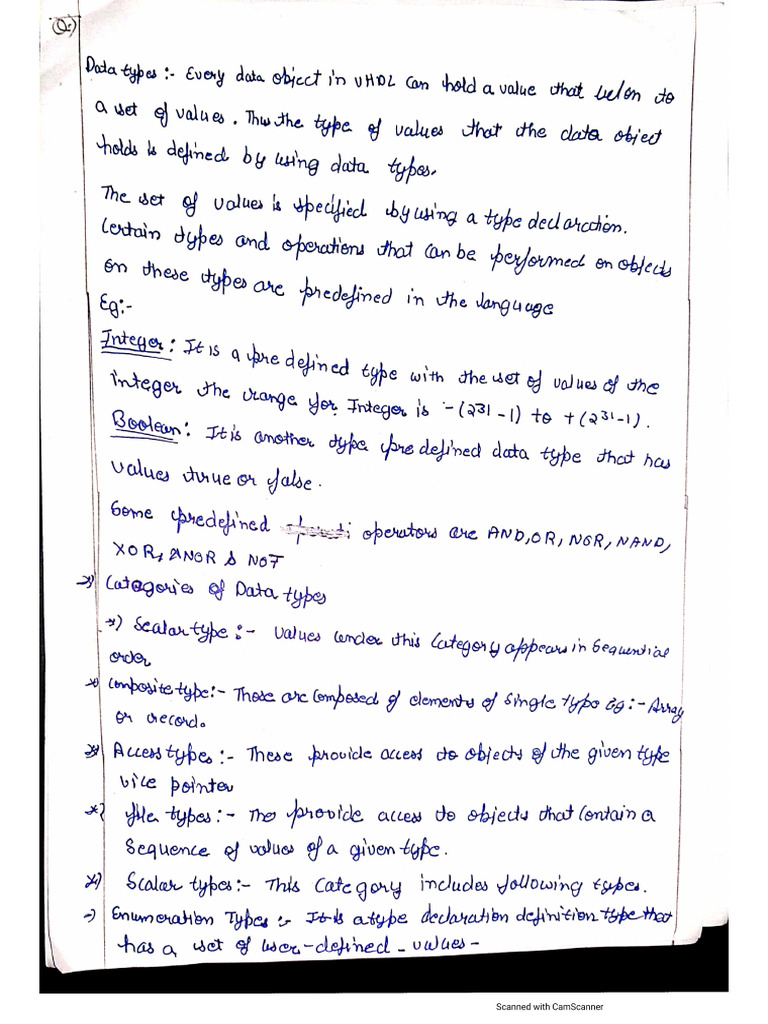 Q:)
Data types :- Every data object in VHDL can hold a value that belon to
a set of values. Thus the type of values that the data object
holds is defined by using data types.
The set of values is specified by using a type declaration.
Certain types and operations that can be performed on objects
on these types are predefined in the language
Eg:-
Integer: It is a pre defined type with the set of values of the
integer the range for Integer is -(2³¹-1) to +(2³¹-1).
Boolean: It is another type pre defined data type that has
values true or false.
Some predefined operators are AND, OR, NOR, NAND,
XOR, XNOR & NOT
→) Catagories of Data types
*) Scalar type :- Values under this Category appears in Sequential
order
*) Composite type :- Those are Composed of elements of Single Type Eg:- Array
or record.
*) Access types :- These provide access to objects of the given type
vice pointer
*) file types :- The provide access to objects that Contain a
Sequence of values of a given type.
*) Scalar types :- This Category includes following types.
-) Enumeration Types :- It is a type declaration definition type that
has a set of user-defined - values -
Scanned with CamScanner